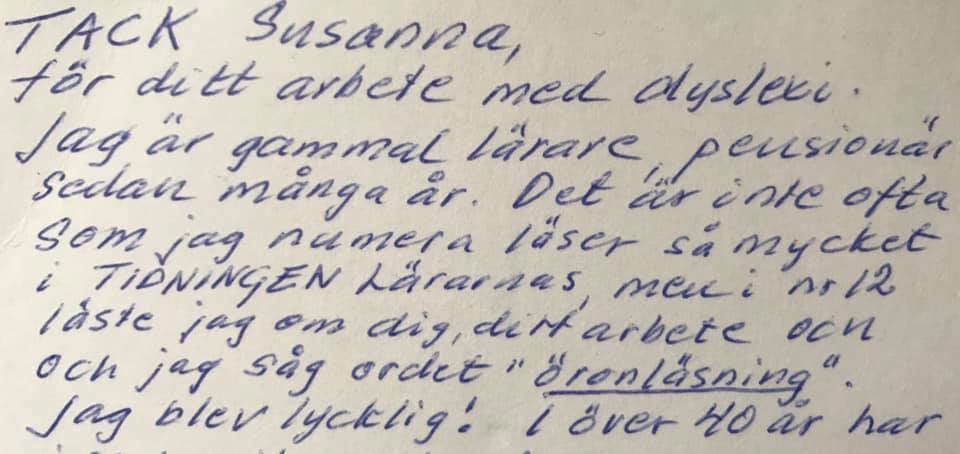 TACK Susanna,
för ditt arbete med dyslexi.
Jag är gammal lärare, pensionär
sedan många år. Det är inte ofta
som jag numera läser så mycket
i TIDNINGEN Lärarnas, men i nr 12
läste jag om dig, ditt arbete och
och jag såg ordet "öronläsning".
Jag blev lycklig! I över 40 år har